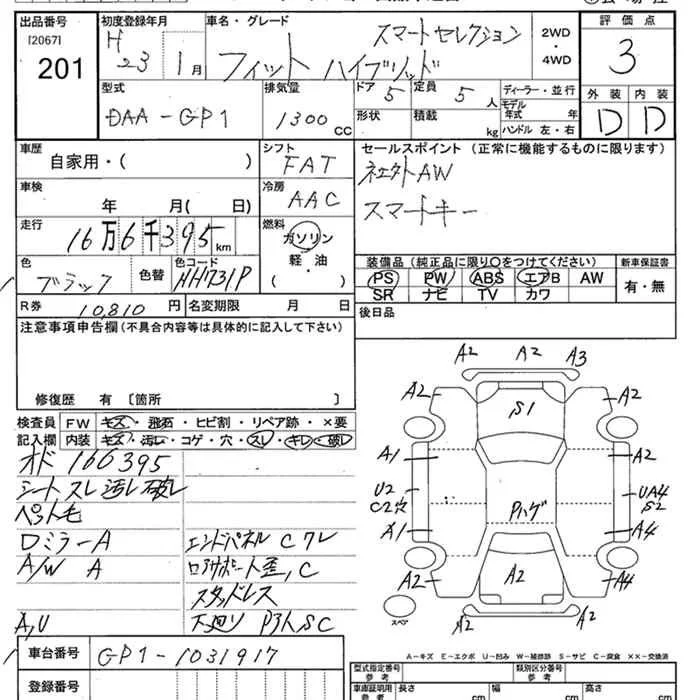 出品番号
[2067]
201
初度登録年月
H 23 1月
車名・グレード
スマートセレクション
フィット ハイブリッド
2WD
・
4WD
評価点
3
外装 内装
D D
型式
DAA-GP1
排気量
1300 cc
ドア 5 定員 5 人
形状 積載 kg
ディーラー・並行
モデル
年式 年
ハンドル 左・右
車歴
自家用・( )
シフト
FAT
車検
年 月( 日)
冷房
AAC
走行
16万6千395km
燃料
ガソリン
軽・油
( )
色
ブラック
色替
色コード
NH731P
R券 10,810 円 名変期限 月 日
セールスポイント(正常に機能するものに限ります)
社外AW
スマートキー
装備品(純正品に限り○をつけてください) 新車保証書
PS PW ABS エアB AW
SR ナビ TV カワ
有・無
後日品
注意事項申告欄(不具合内容等は具体的に記入して下さい)
修復歴 有 〔箇所 〕
検査員 FW キズ・飛石・ヒビ割・リペア跡・×要
記入欄 内装 キズ・汚レ・コゲ・穴・スレ・キレ・破レ
オド 166395
シートスレ汚レ破レ
ペット毛
ロミラーA エンドパネルCワレ
A/W A コアサポート歪,C
スタッドレス
A,U 下廻り P3ヘSC
車台番号 GP1-1031917
登録番号
A2 A2 A3
A2 S1 A2
A1 A2
U2 UA4
C2穴 S2
Pハゲ
A1 A4
A2 A2 A4
スペア
A2 A2
A-キズ E-エクボ U-凹み W-補修跡 S-サビ C-腐食 ××-交換済
型式指定番号
参考
類別区分番号
参考
車庫証明用
参考
長さ cm 幅 cm 高さ cm